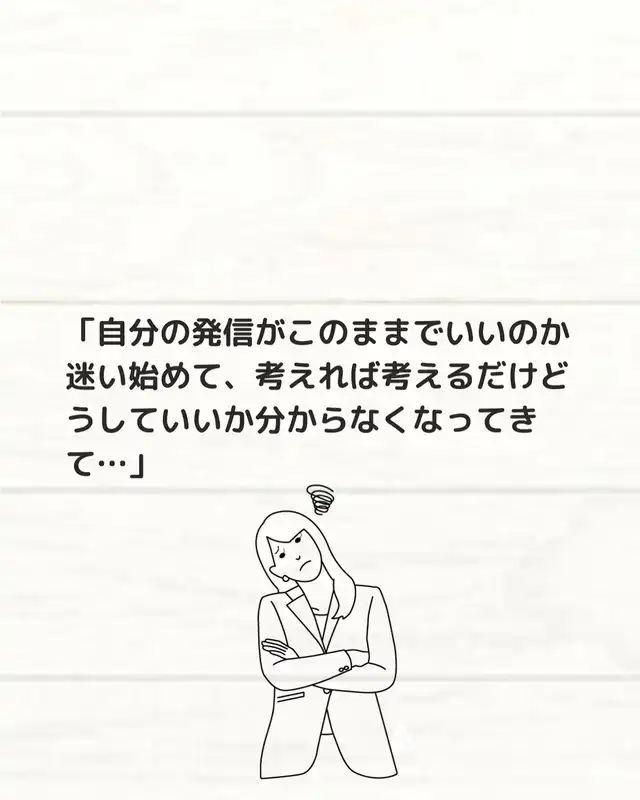 「自分の発信がこのままでいいのか
迷い始めて、考えれば考えるだけど
うしていいか分からなくなってき
て…」